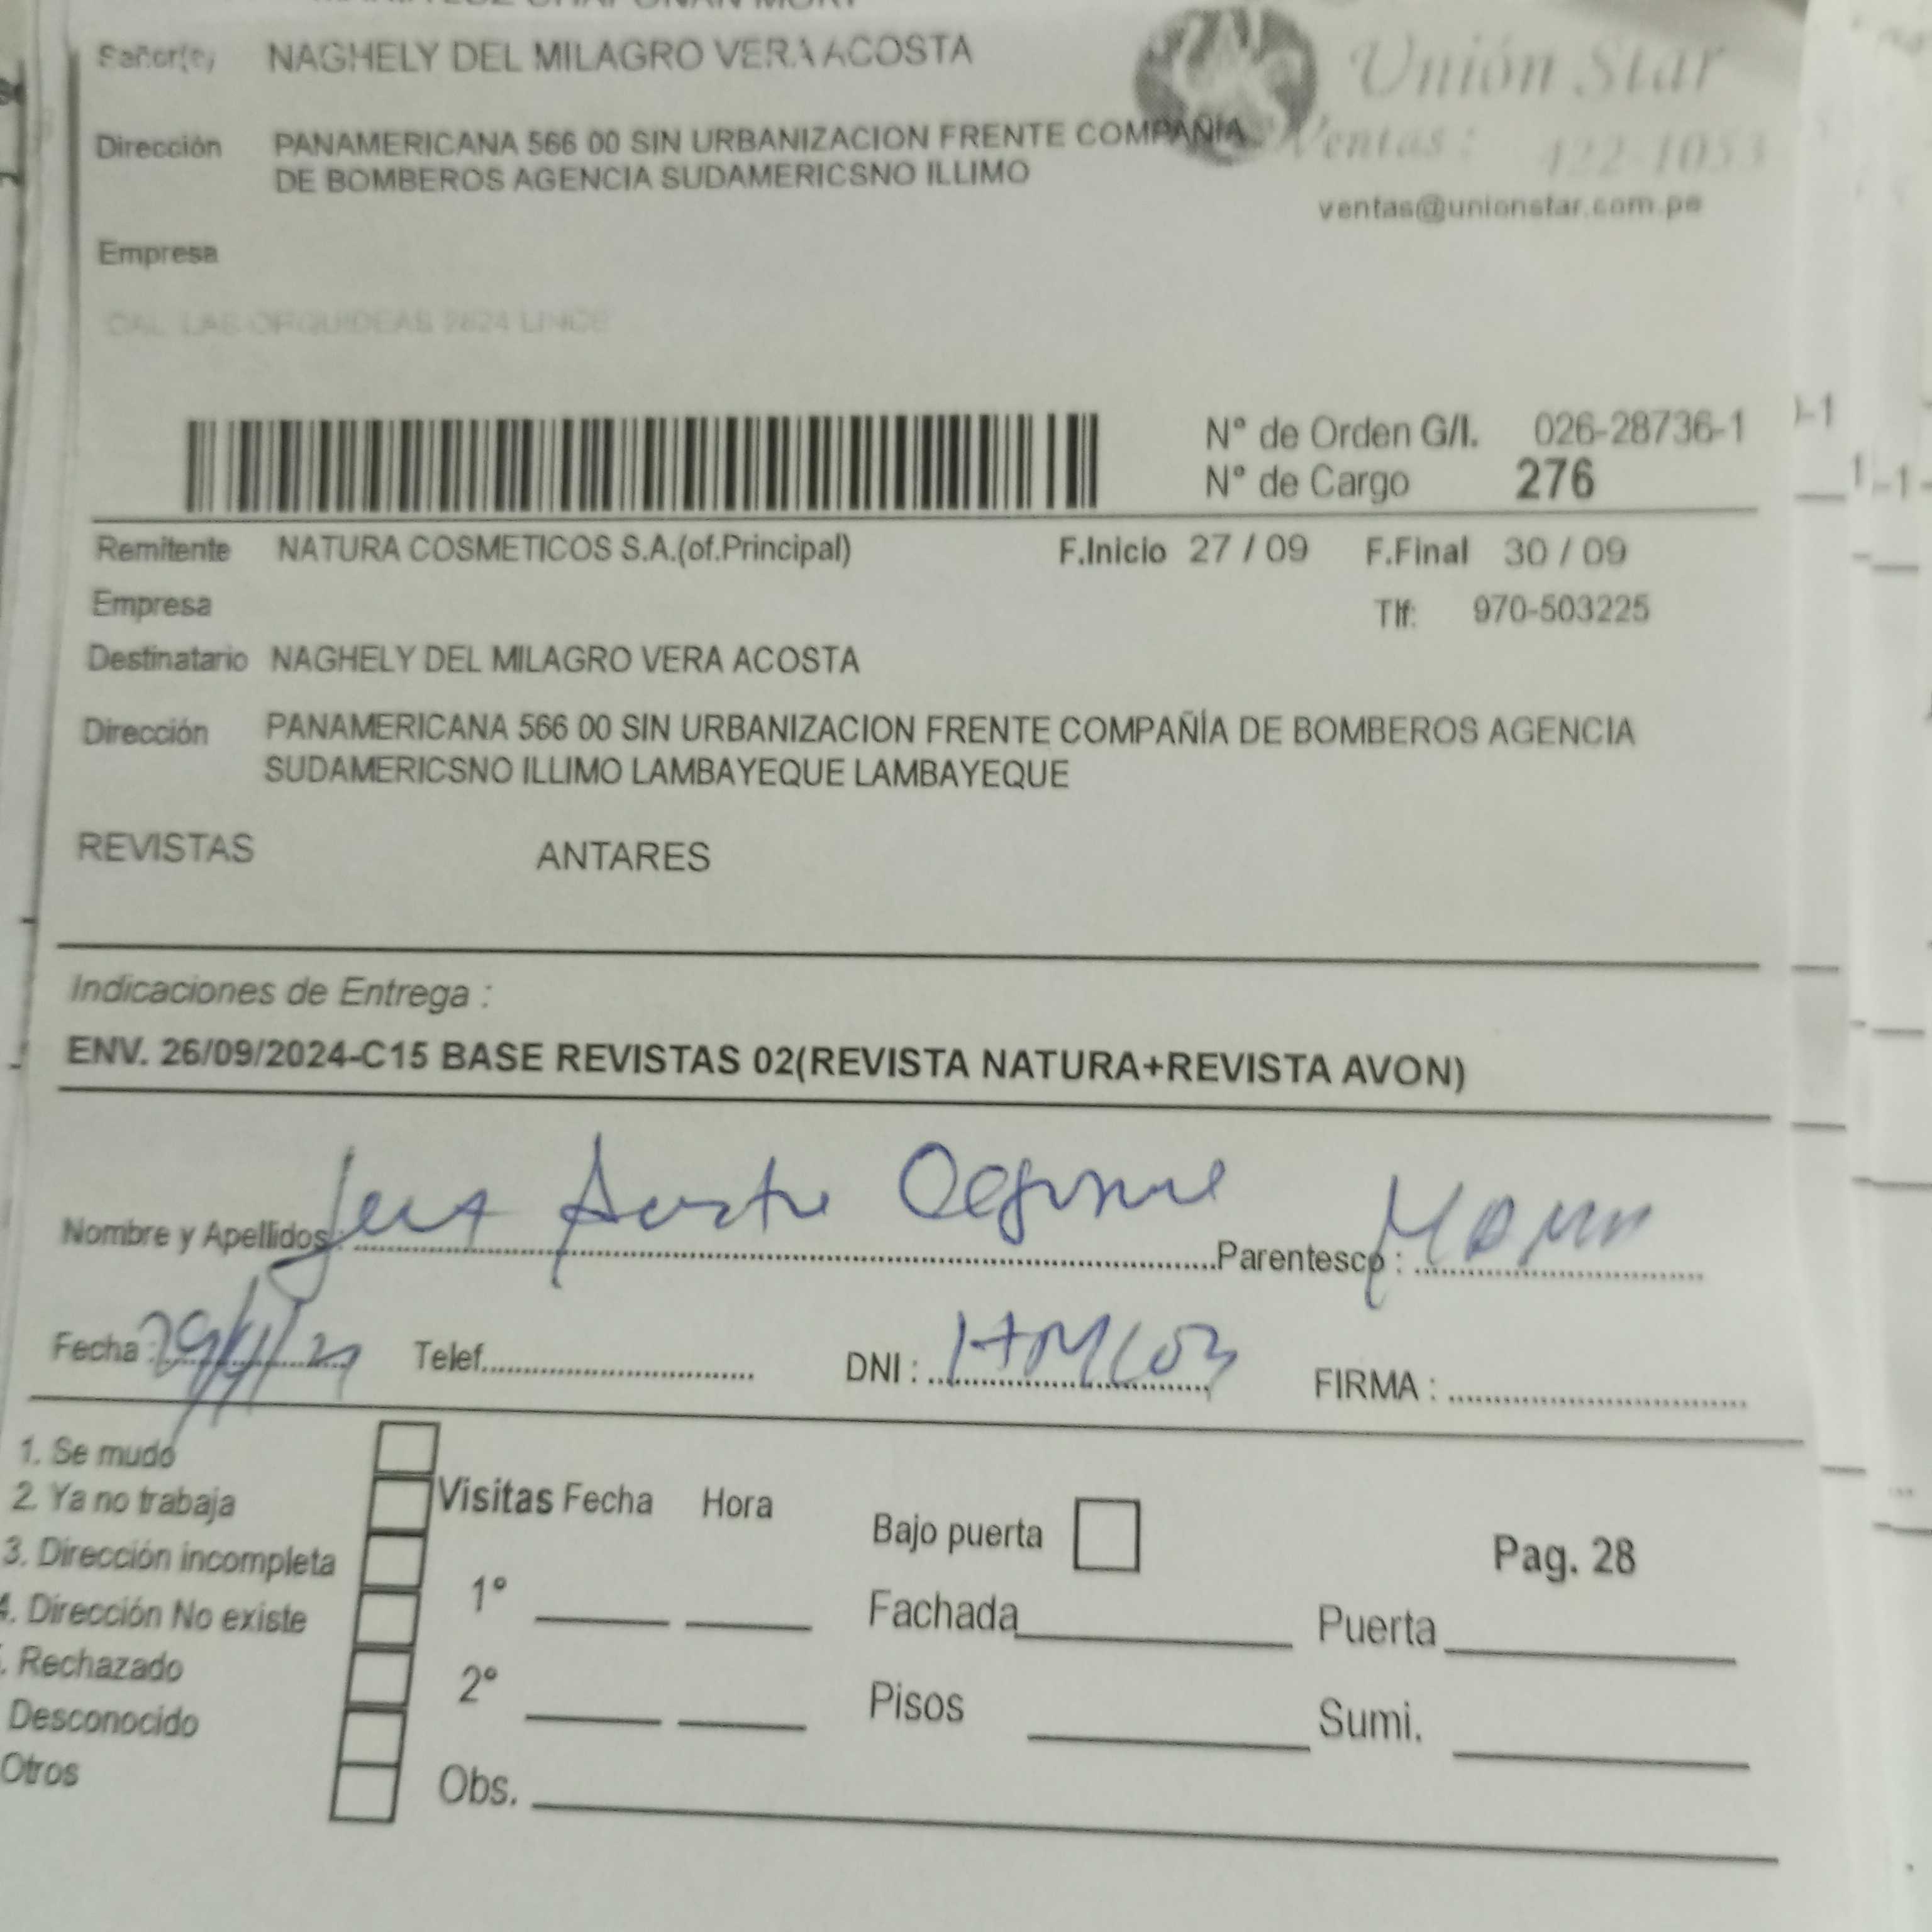 Señor(e) NAGHELY DEL MILAGRO VERA ACOSTA
Unión Star
Dirección PANAMERICANA 566 00 SIN URBANIZACION FRENTE COMPAÑÍA
DE BOMBEROS AGENCIA SUDAMERICSNO ILLIMO
Ventas: 422-1053
ventas@unionstar.com.pe
Empresa
CAL LAS ORQUIDEAS 2624 LINCE
N° de Orden G/I. 026-28736-1
N° de Cargo 276
Remitente NATURA COSMETICOS S.A.(of.Principal) F.Inicio 27 / 09 F.Final 30 / 09
Empresa Tlf: 970-503225
Destinatario NAGHELY DEL MILAGRO VERA ACOSTA
Dirección PANAMERICANA 566 00 SIN URBANIZACION FRENTE COMPAÑÍA DE BOMBEROS AGENCIA
SUDAMERICSNO ILLIMO LAMBAYEQUE LAMBAYEQUE
REVISTAS ANTARES
Indicaciones de Entrega :
ENV. 26/09/2024-C15 BASE REVISTAS 02(REVISTA NATURA+REVISTA AVON)
Nombre y Apellidos: Parentesco :
Fecha : Telef. DNI : FIRMA :
1. Se mudó
2. Ya no trabaja
Visitas Fecha Hora
Bajo puerta
Pag. 28
3. Dirección incompleta
1°
Fachada Puerta
4. Dirección No existe
. Rechazado
2°
Pisos Sumi.
Desconocido
Otros
Obs.